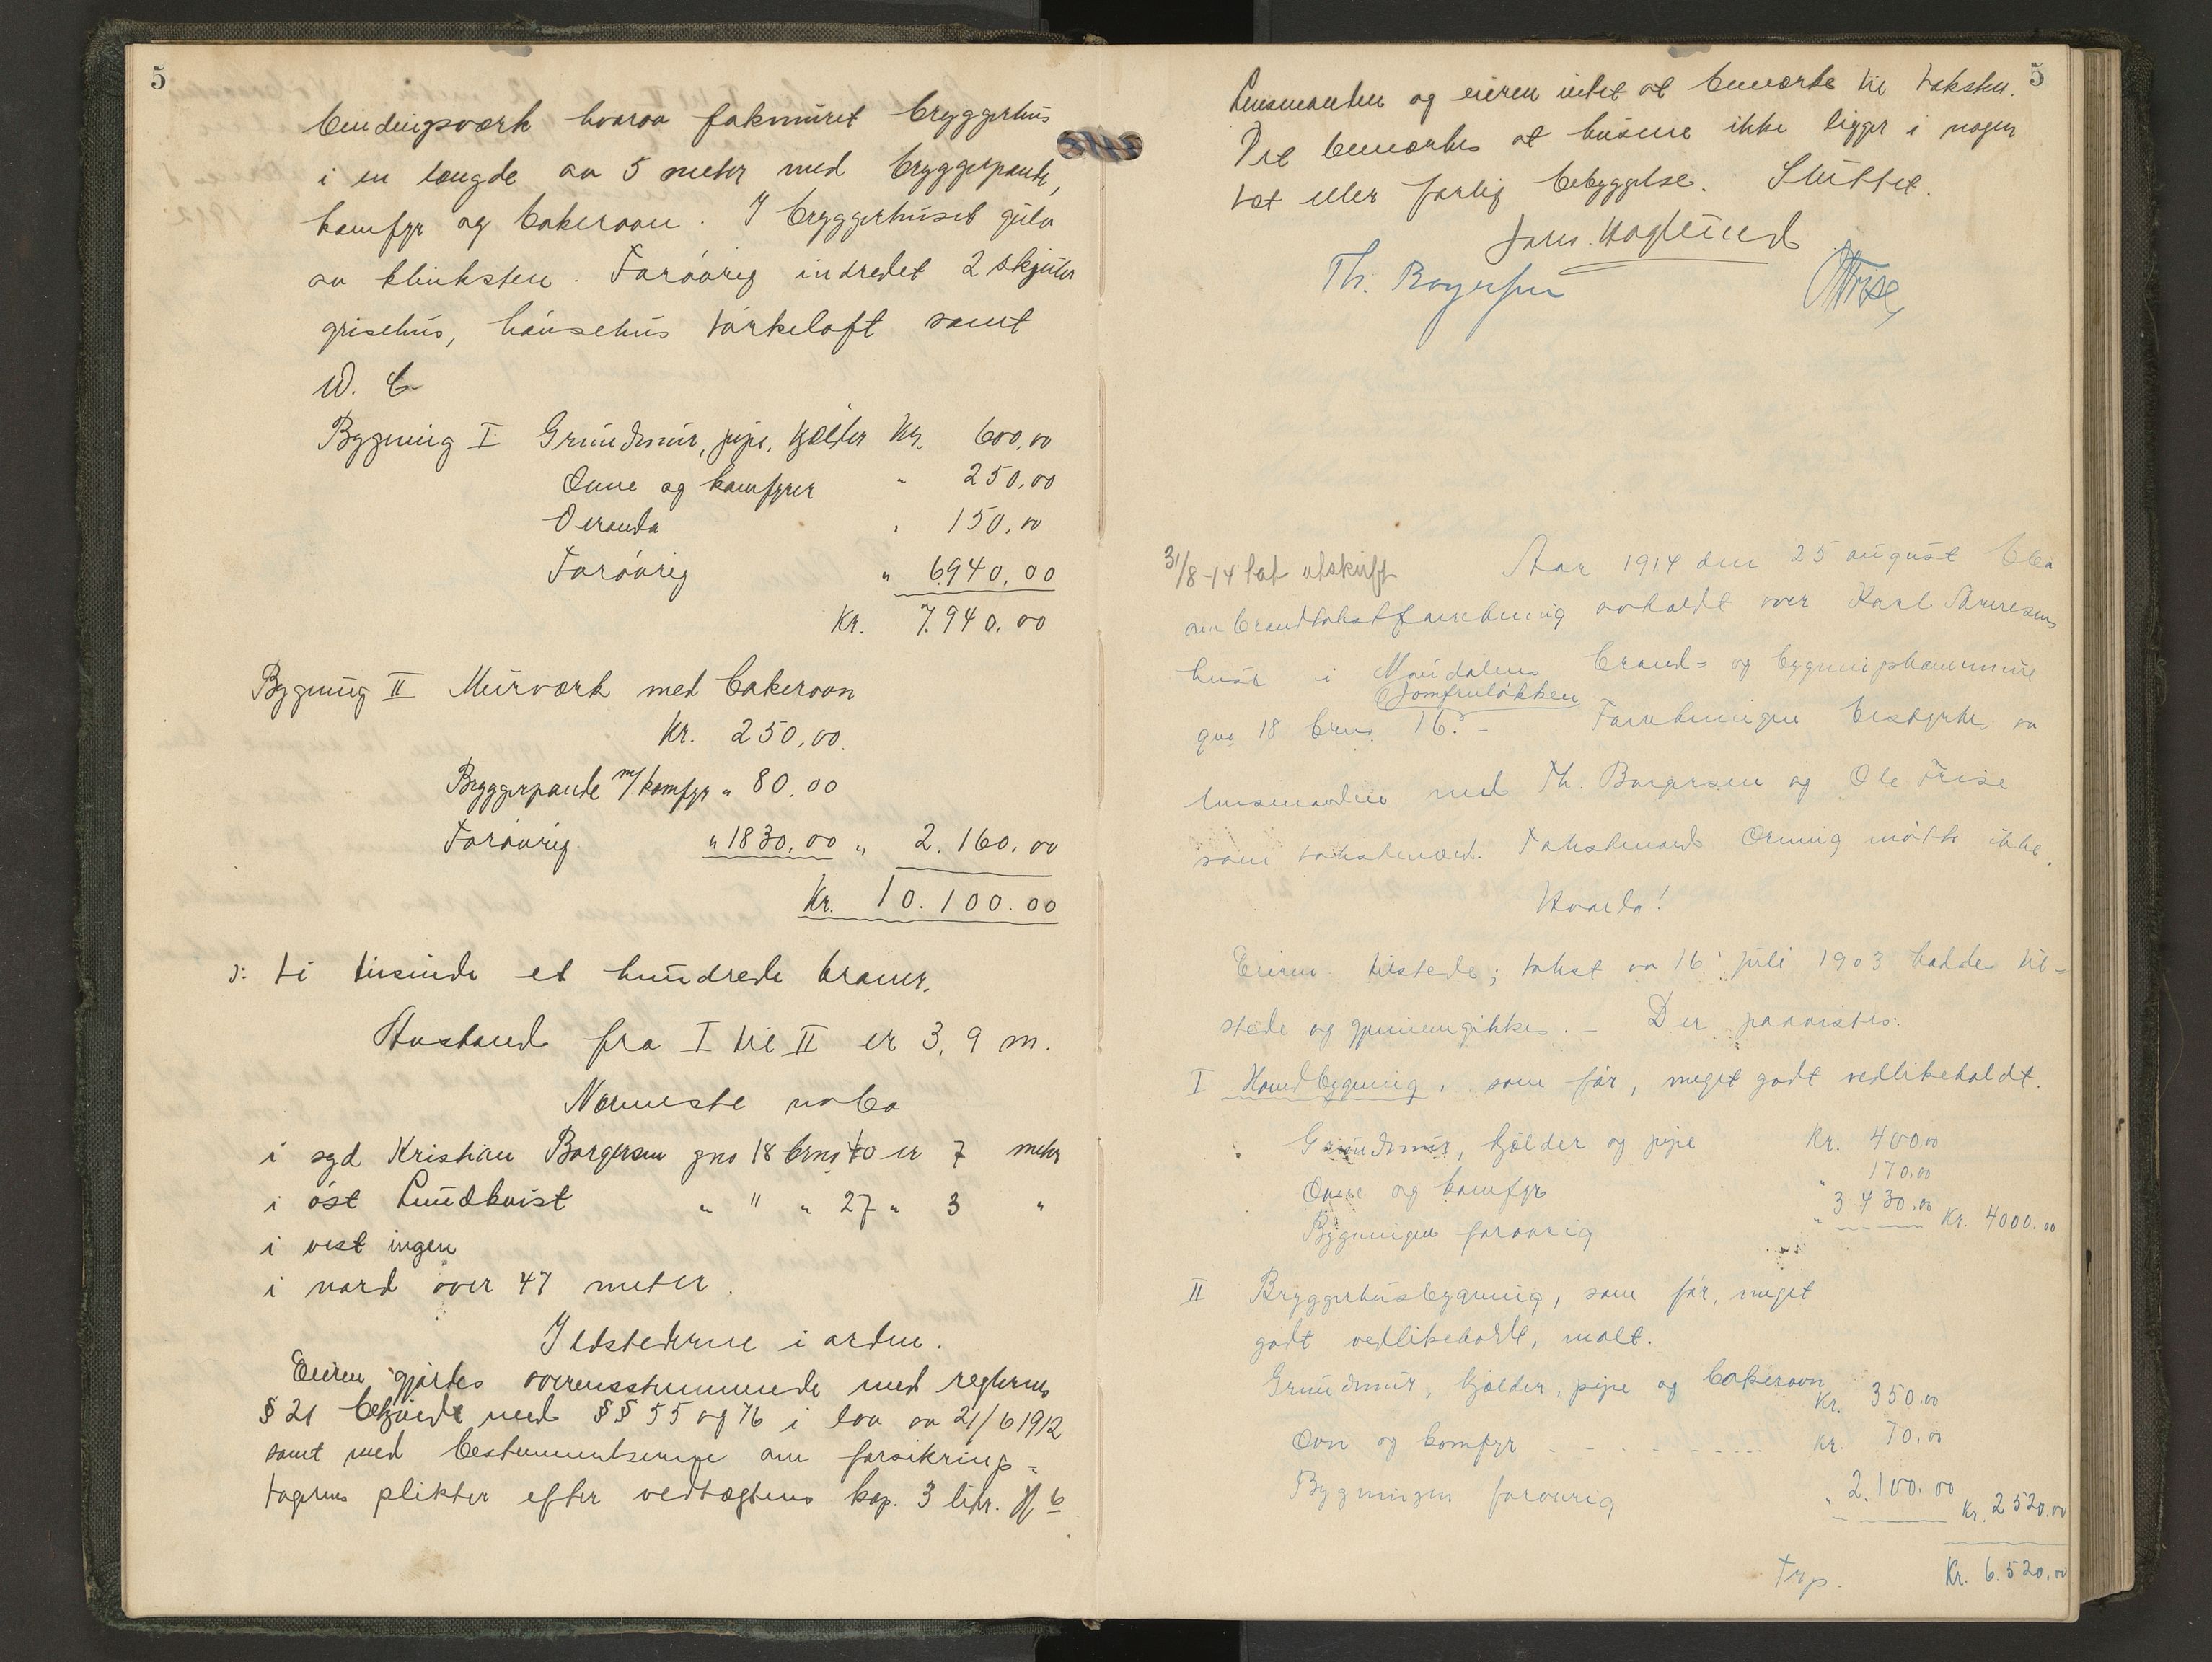 5
bindingsværk hvorav fakmuret bryggerhus
i en længde av 5 meter med bryggerpande,
komfyr og bakerovn. I bryggerhuset gulv
av klinksten. Forøvrig indredet 2 skjuler
grisehus, hønsehus tørkeloft samt
W. C
Bygning I Grundmur, pipe, kjælder Kr. 600,00
Ovne og komfyrer " 250,00
Veranda " 150,00
Forøvrig " 6940,00
Kr. 7.940,00
Bygning II Murværk med bakerovn
Kr. 250,00.
Bryggerpande m/komfyr " 80.00
Forøvrig " 1830,00 " 2.160,00
Kr. 10.100.00
ɔ: ti tusinde et hundrede kroner.
Avstand fra I til II er 3,9 m.
Nærmeste nabo
i syd Kristian Borgersen gno 18 brno 10 er 7 meter
i øst Lundkvist " " " 27 " 3 "
i vest ingen
i nord over 47 meter.
Ildstederne i orden.
Eieren gjordes overensstemmende med reglernes
§ 21 bekjendt med §§ 55 og 76 i lov av 21/6 1912
samt med bestemmelserne om forsikring-
tagerens plikter efter vedtægtens kap. 3 litr.
5
Lensmanden og eieren intet at bemerke til taksten.
Det bemerkes at husene ikke ligger i nogen
tæt eller farlig bebyggelse. Sluttet.
Joh. Haglund
Th. Borgersen OFrise
31/8-14 tat utskrift Aar 1914 den 25 august blev
en brandtakstforretning avholdt over Karl
huse i brand- og bygningskommune
Jomfruløkken
gno 18 brno 16. - Forretningen bestyrtes av
lensmanden med Th. Borgersen og Ole Frise
som takstmænd. Takstmand Orning møtte ikke.
Hvorda!
Eieren tilstede; takst av 16 juli 1903 havdes til-
stede og gjennemgikkes. - Der paavistes:
I Hovedbygning, som før, meget godt vedlikeholdt.
Grundmur, kjælder og pipe Kr. 400,00
Ovne og komfyr " 170,00
Bygningen forøvrig " 3430,00 Kr. 4000.00
II Bryggerhusbygning, som før, meget
godt vedlikeholdt, malt.
Grundmur, kjælder, pipe og bakerovn
Kr. 350.00
Ovn og komfyr - - - - - Kr. 70,00
Bygningen forøvrig " 2.100.00 Kr. 2520.00
Trp. Kr. 6.520,00